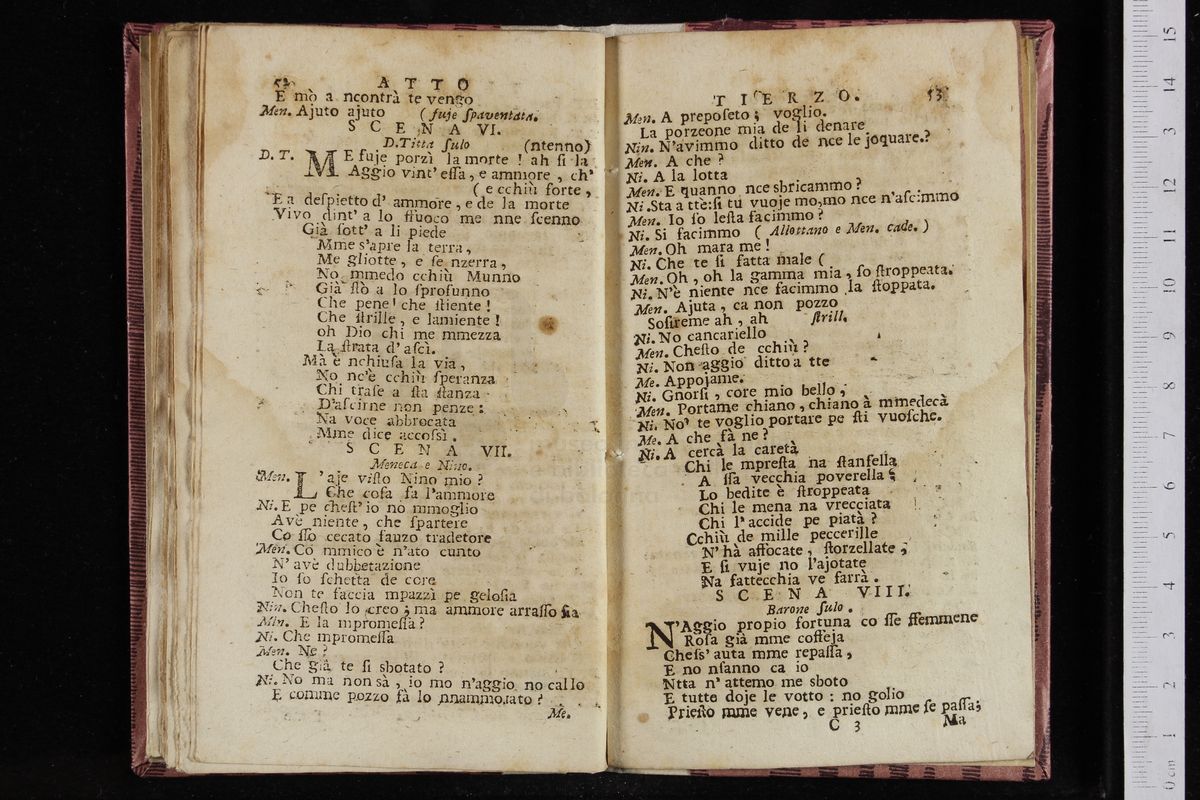 52 A T T O
E mò a ncontrà te vengo
Men. Ajuto ajuto ( fuje ſpaventata.
S C E N A VI.
D.Titta ſulo (ntenno)
D. T. ME fuje porzì la morte ! ah ſi la
Aggio vint' eſſa, e ammore , ch'
( e cchiù forte ,
E a deſpietto d' ammore , e de la morte
Vivo dint' a lo ffuoco me nne ſcenno
Già ſott' a li piede
Mme s'apre la terra,
Me gliotte, e ſe nzerra,
No mmedo cchiù Munno
Già ſtò a lo ſprofunno
Che pene! che ſtiente !
Che ſtrille , e lamiente !
oh Dio chi me mmezza
La ſtrata d' aſcì.
Mà è nchiuſa la via,
No nc'è cchiù ſperanza
Chi traſe a ſta ſtanza
D'aſcirne non penze:
Na voce abbrocata
Mme dice accoſsì .
S C E N A VII.
Meneca e Nino.
Men. L'aje viſto Nino mio ?
Che coſa fa l'ammore
Ni. E pe cheſt' io no mmoglio
Avè niente, che ſpartere
Co ſſo cecato fauzo tradetore
Men. Co mmico è n'ato cunto
N' avè dubbetazione
Io ſo ſchetta de core
Non te faccia mpazzì pe geloſia
Nin. Cheſto lo creo ; ma ammore arraſſo ſia
Min. E la mpromeſſa ?
Ni. Che mpromeſſa
Men. Ne ?
Che già te ſi sbotato ?
Ni. No ma non sà , io mo n'aggio no callo
E comme pozzo fà lo nnammorato ?
Me.
T I E R Z O. 53
Men. A prepoſeto ; voglio.
La porzeone mia de li denare
Nin. N'avimmo ditto de nce le joquare.?
Men. A che ?
Ni. A la lotta
Men. E quanno nce sbricammo ?
Ni .Sta a tte:ſi tu vuoje mo,mo nce n'aſcimmo
Men. Io ſo leſta facimmo ?
Ni. Si facimmo ( Allottano e Men. cade. )
Men. Oh mara me !
Ni. Che te ſi fatta male (
Men. Oh , oh la gamma mia , ſo ſtroppeata.
Ni. N'è niente nce facimmo la ſtoppata.
Men. Ajuta , ca non pozzo
Soſireme ah , ah ſtrill.
Ni. No cancariello
Men. Cheſto de cchiù ?
Ni. Non aggio ditto a tte
Me. Appojame.
Ni. Gnorſi , core mio bello ,
Men. Portame chiano , chiano à mmedecà
Ni. No' te voglio portare pe ſti vuoſche.
Me. A che fà ne ?
Ni. A cercà la caretà
Chi le mpreſta na ſtanfella
A ſſa vecchia poverella ;
Lo bedite è ſtroppeata
Chi le mena na vrecciata
Chi l' accide pe piatà ?
Cchiù de mille peccerille
N' hà affocate , ſtorzellate ;
E ſi vuje no l'ajotate
Na fattecchia ve farrà .
S C E N A VIII.
Barone ſulo .
N'Aggio propio fortuna co ſſe ffemmene
Roſa già mme coffeja
Cheſs' auta mme repaſſa ,
E no nſanno ca io
Ntta n' attemo me sboto
E tutte doje le votto : no golio
Prieſto mme vene, e prieſto mme ſe paſſa;
C 3 Ma